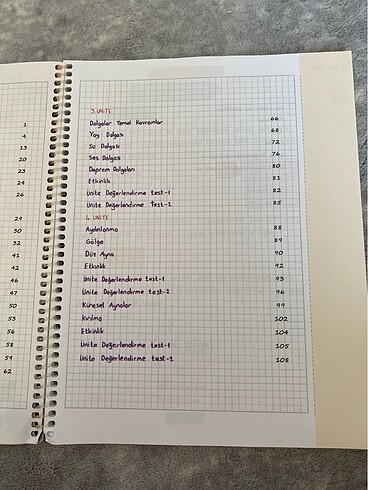 1
4
13
20
23
24
26
29
30
32
41
42
46
47
50
53
56
58
59
62
3. ÜNİTE
Dalgalar Temel Kavramlar 66
Yay Dalgası 68
Su Dalgası 72
Ses Dalgası 76
Deprem Dalgaları 80
Etkinlik 81
Ünite Değerlendirme test-1 82
Ünite Değerlendirme test-2 85
4. ÜNİTE
Aydınlanma 88
Gölge 89
Düz Ayna 90
Etkinlik 92
Ünite Değerlendirme test-1 93
Ünite Değerlendirme test-2 96
Küresel Aynalar 99
Kırılma 102
Etkinlik 104
Ünite Değerlendirme test-1 105
Ünite Değerlendirme test-2 108